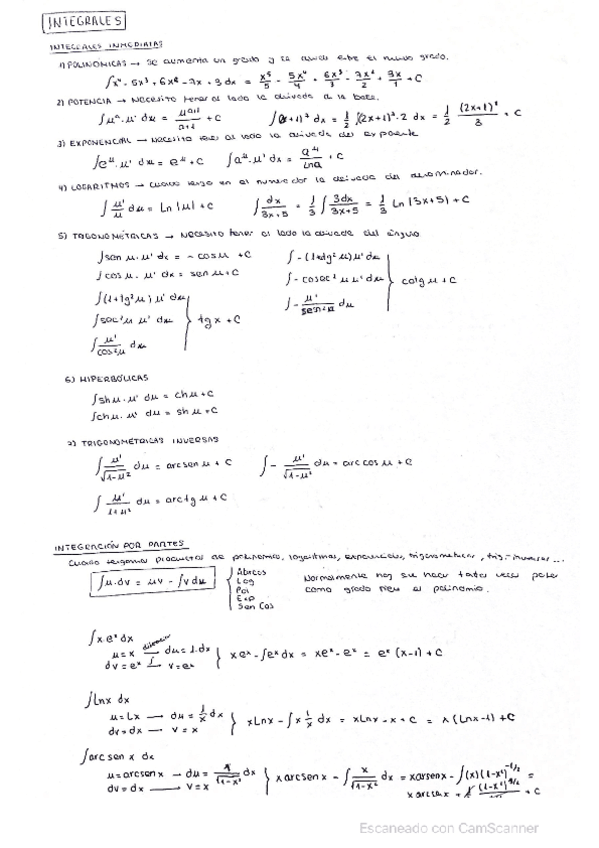 INTEGRALES
INTEGRALES INMEDIATAS
1) POLINÓMICAS → Se aumenta un grado y se divide entre el nuevo grado.
∫x⁴ - 5x³ + 6x² - 7x + 3 dx = x⁵/5 - 5x⁴/4 + 6x³/3 - 7x²/2 + 3x/1 + C
2) POTENCIA → Necesito tener al lado la derivada de la base.
∫uᵃ · u' dx = uᵃ⁺¹/a+1 + C ∫(2x+1)² dx = 1/2 ∫(2x+1)² · 2 dx = 1/2 (2x+1)³/3 + C
3) EXPONENCIAL → Necesito tener al lado la derivada del exponente
∫eᵘ · u' dx = eᵘ + C ∫aᵘ · u' dx = aᵘ/Lna + C
4) LOGARITMOS → Cuando tengo en el numerador la derivada del denominador.
∫ u'/u du = Ln |u| + C ∫ dx/3x+5 = 1/3 ∫ 3dx/3x+5 = 1/3 Ln |3x+5| + C
5) TRIGONOMÉTRICAS → Necesito tener al lado la derivada del ángulo
∫sen u · u' dx = - cos u + C ∫-(1+cotg²u) u' dx
∫cos u · u' dx = sen u + C ∫-cosec² u u' dx } cotg u + C
∫(1+tg²u) u' dx ∫- u'/sen²u du
∫sec²u u' dx } tg x + C
∫ u'/cos²u dx
6) HIPERBÓLICAS
∫sh u · u' du = ch u + C
∫ch u · u' du = sh u + C
7) TRIGONOMÉTRICAS INVERSAS
∫ u'/√1-u² du = arcsen u + C ∫- u'/√1-u² du = arc cos u + C
∫ u'/1+u² du = arctg u + C
INTEGRACIÓN POR PARTES
Cuando tengamos productos de polinomio, logaritmos, exponenciales, trigonométricas, trig. inversas...
∫u·dv = uv - ∫v du
Arcos
Log
Pol
Exp
Sen Cos
Normalmente hay que hacer tantas veces partes
como grado tiene el polinomio.
∫x eˣ dx
u = x → du = 1·dx
dv = eˣ ∫→ v = eˣ } x eˣ - ∫eˣ dx = xeˣ - eˣ = eˣ (x-1) + C
∫Lnx dx
u = Lx → du = 1/x dx
dv = dx → v = x } xLnx - ∫x 1/x dx = xLnx - x + C = x (Lnx-1) + C
∫arc sen x dx
u = arcsen x → du = 1/√1-x² dx
dv = dx → v = x } x arcsen x - ∫ x/√1-x² dx = xarsenx - ∫(x)(1-x²)^-1/2 =
x arcsen x + (1-x²)^1/2 + C
Escaneado con CamScanner